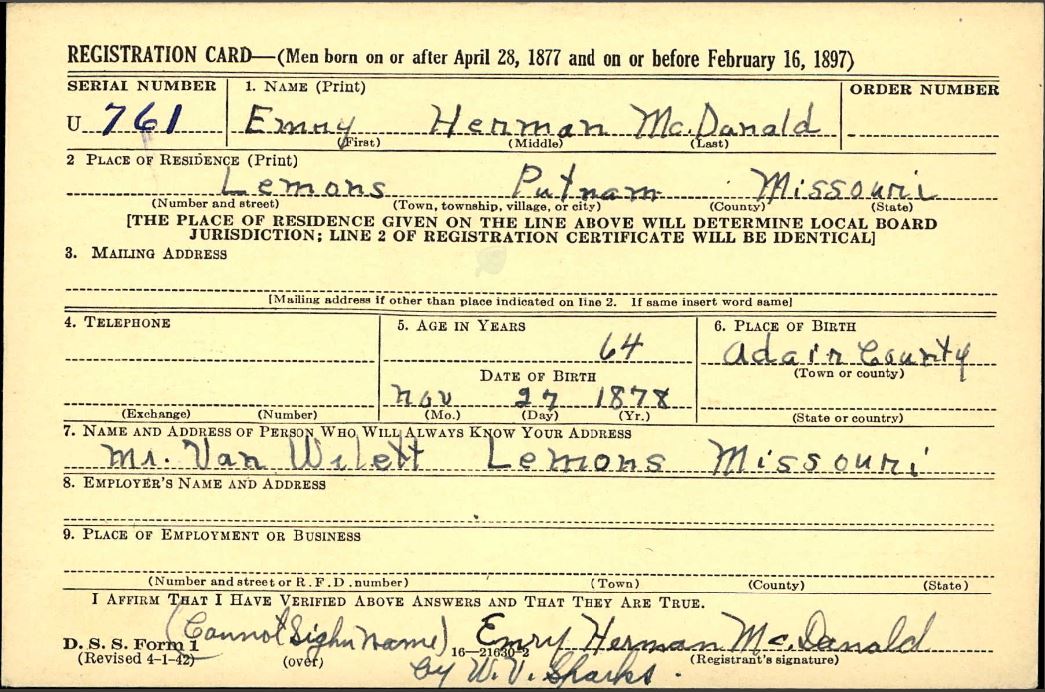 REGISTRATION CARD—(Men born on or after April 28, 1877 and on or before February 16, 1897)
SERIAL NUMBER 1. NAME (Print) ORDER NUMBER
U 761 Emry Herman McDanald
(First) (Middle) (Last)
2 PLACE OF RESIDENCE (Print)
Lemons Putnam Missouri
(Number and street) (Town, township, village, or city) (County) (State)
[THE PLACE OF RESIDENCE GIVEN ON THE LINE ABOVE WILL DETERMINE LOCAL BOARD
JURISDICTION; LINE 2 OF REGISTRATION CERTIFICATE WILL BE IDENTICAL]
3. MAILING ADDRESS
[Mailing address if other than place indicated on line 2. If same insert word same]
4. TELEPHONE 5. AGE IN YEARS 6. PLACE OF BIRTH
64 Adair County
DATE OF BIRTH (Town or county)
Nov 27 1878
(Exchange) (Number) (Mo.) (Day) (Yr.) (State or country)
7. NAME AND ADDRESS OF PERSON WHO WILL ALWAYS KNOW YOUR ADDRESS
Mr. Van Wilett Lemons Missouri
8. EMPLOYER'S NAME AND ADDRESS
9. PLACE OF EMPLOYMENT OR BUSINESS
(Number and street or R. F. D. number) (Town) (County) (State)
I AFFIRM THAT I HAVE VERIFIED ABOVE ANSWERS AND THAT THEY ARE TRUE.
(Cannot Sighn name) Emry Herman McDanald
D. S. S. Form 1
(Revised 4-1-42) (over) 16—21630-2 (Registrant's signature)
by W. V. Sparks.